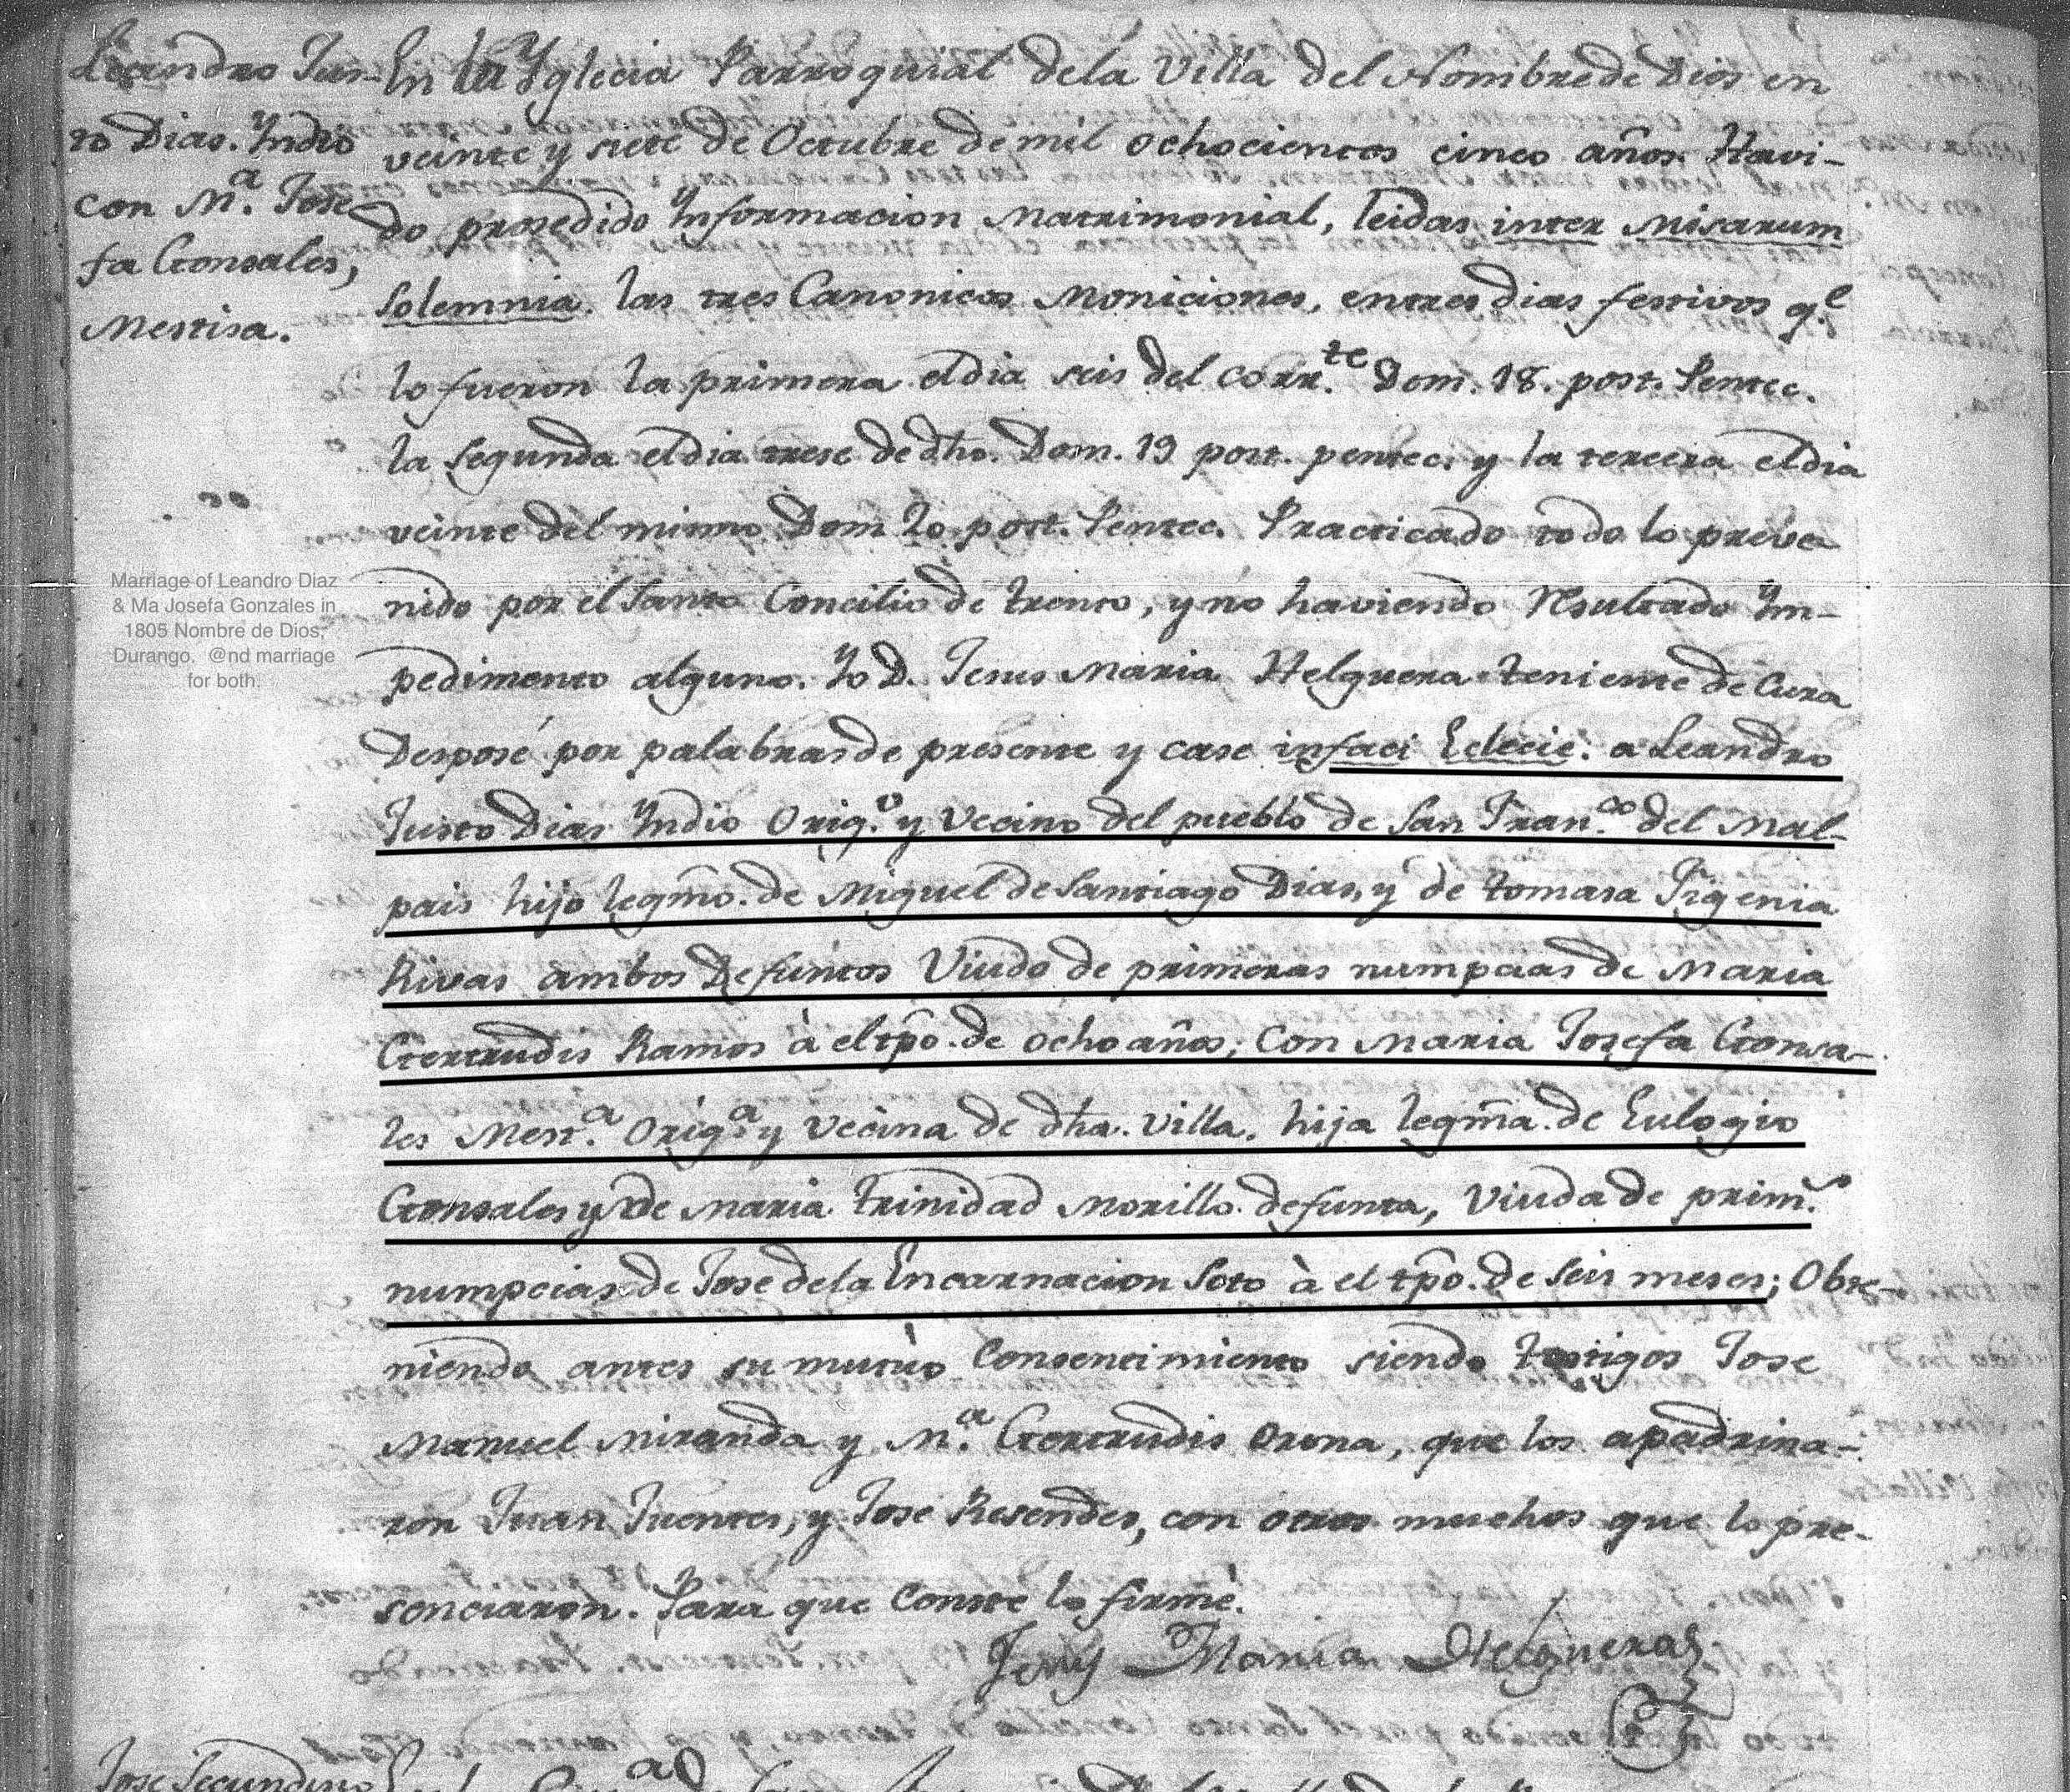 Leandro Jus-
to Dias. Yndio
con M.ª Jose
fa Gonsales,
Mestisa.
En la Yglecia Parroquial dela Villa del Nombre de Dios en
veinte y siete de Octubre de mil ochocientos cinco años. Havi-
do prosedido Ynformacion Matrimonial, leidas inter Misarum
Solemnia. las tres Canonicas Moniciones, entres dias festivos q.e
lo fueron la primera eldia seis del corr.te Dom. 18. post. Pentec.
la segunda eldia trese de dho. Dom. 19 post. pentec. y la tercera eldia
veinte del mismo Dom 20 post. Pentec. Practicado todo lo preve
nido por el Santo Concilio de trento, y no haviendo Resultado Ym-
pedimento alguno. Yo D. Jesus Maria Helguera teniente de Cura
Desposé por palabras de presente y case infaci Eclecie. a Leandro
Justo Dias Yndio Orig.o y Vecino del pueblo de San Fran.co del Mal-
pais hijo legmo. de Miguel de Santiago Dias, y de tomasa Figenia
Rivas ambos Defuntos Viudo de primeras numpcias de Maria
Gertrudis Ramos à el tpo. de ocho años; con Maria Josefa Gonsa-
les Mest.a Orig.a y Vecina de dha. Villa. hija legma. de Eulogio
Gonsales y de Maria trinidad Morillo defunta, Viuda de prim.s
numpcias de Jose dela Encarnacion Soto à el tpo. de seis meses; Obte-
niendo antes su mutùo Consentimiento siendo testigos Jose
Manuel Miranda y M.a Gertrudis Orona, que los apadrina-
ron Juan Fuentes, y Jose Resendes, con otros muchos que lo pre-
senciaron. Para que Conste lo firmé.
Jesus Maria Helguera
Marriage of Leandro Diaz
& Ma Josefa Gonzales in
1805 Nombre de Dios,
Durango. @nd marriage
for both.
Jose Secundino